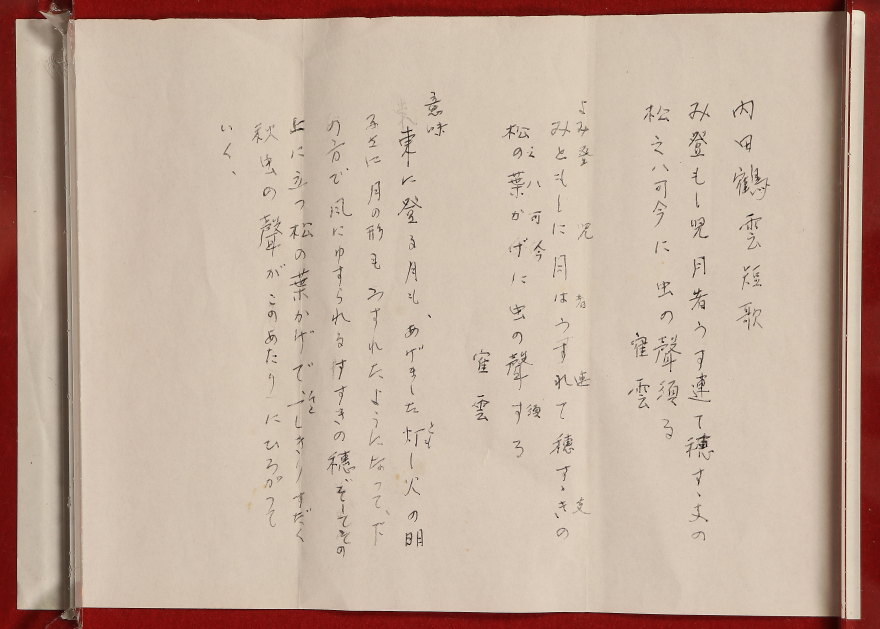 内田鶴雲短歌
み登もし児月者うす連て穂すゝ支の
松之八可今に虫の聲須る
寉雲
よみ登児者連支
みともしに月はうすれて穂すゝきの
之八可今須
松の葉かげに虫の聲する
寉雲
意味
東に登る月も、あげました灯し火の明
とも
に月の形もうすれたようになって、
の方で風にゆすられるすすきの穂そしてその
上に立つ松の葉かげで一しきりすだく
秋虫の聲がこのあたりにひろがって
いく、